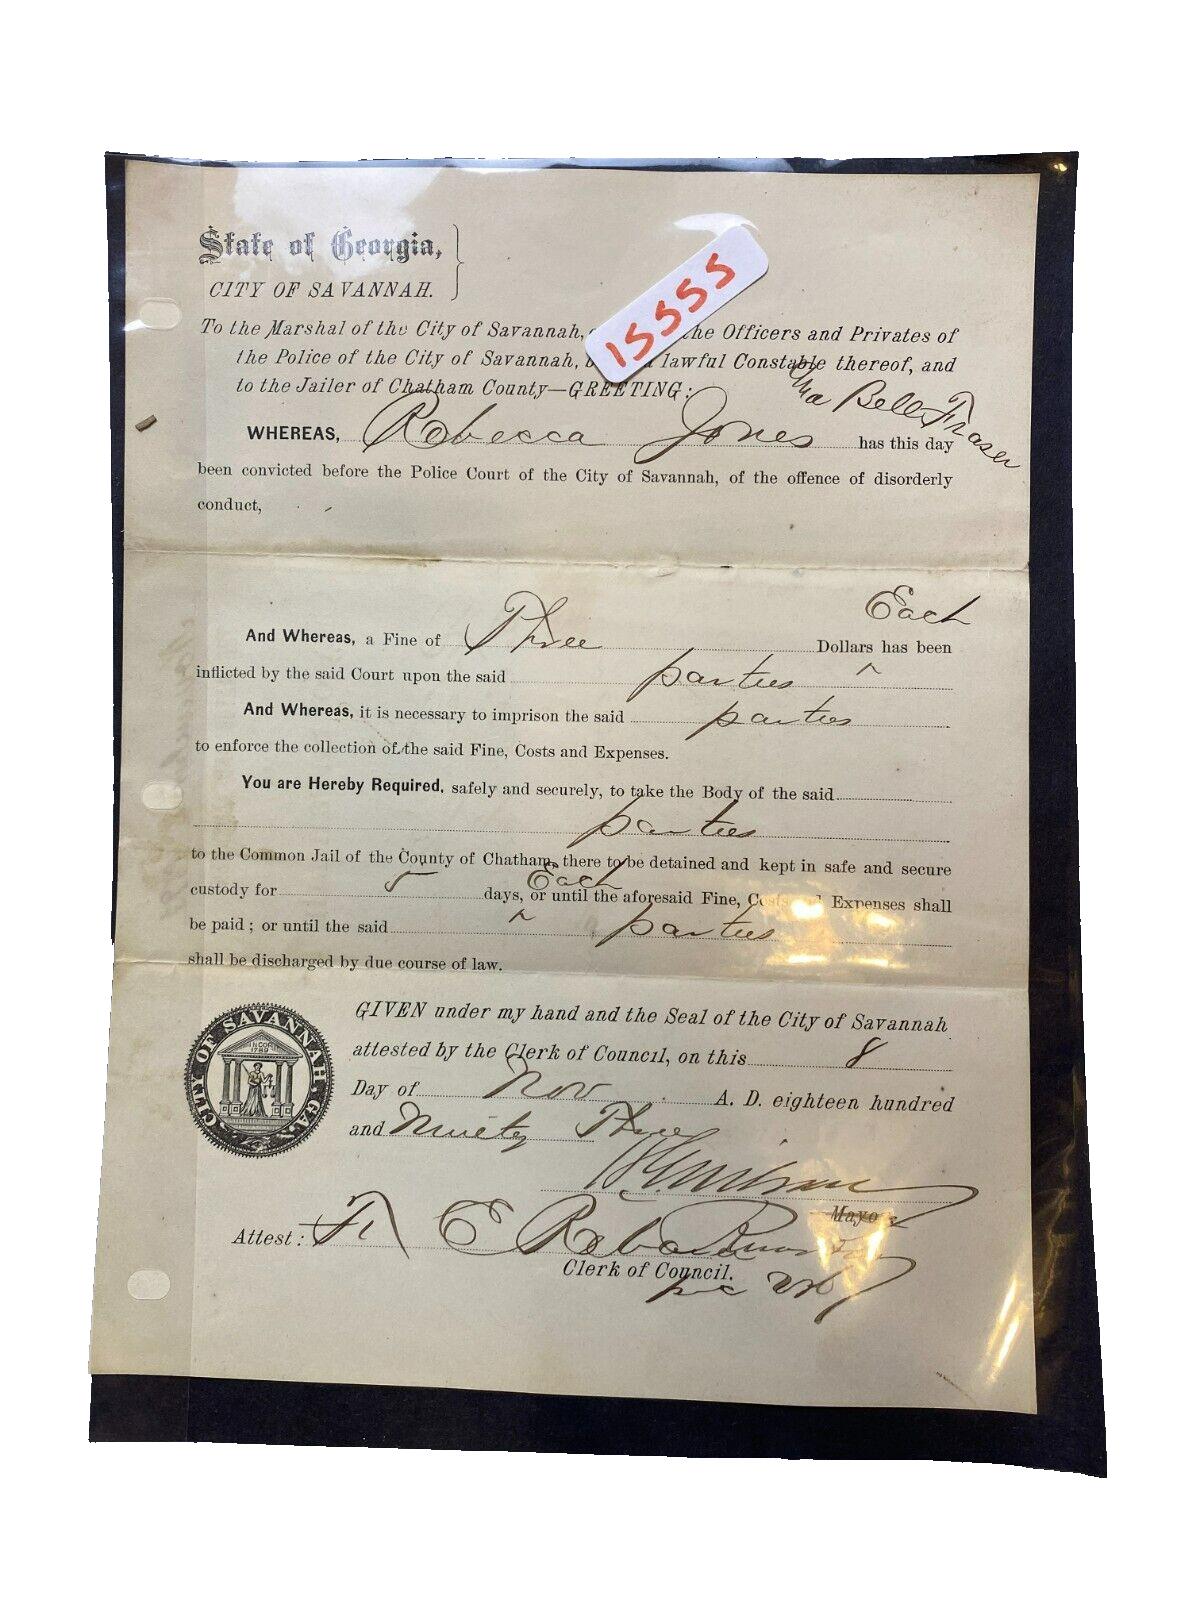 State of Georgia,
CITY OF SAVANNAH.
15555
To the Marshal of the City of Savannah, the Officers and Privates of
the Police of the City of Savannah, lawful Constable thereof, and
to the Jailer of Chatham County—GREETING:
Bell Fraser
WHEREAS, Rebecca Jones has this day
been convicted before the Police Court of the City of Savannah, of the offence of disorderly
conduct,
Each
And Whereas, a Fine of Three Dollars has been
inflicted by the said Court upon the said parties ^
And Whereas, it is necessary to imprison the said parties
to enforce the collection of the said Fine, Costs and Expenses.
You are Hereby Required, safely and securely, to take the Body of the said
parties
to the Common Jail of the County of Chatham, there to be detained and kept in safe and secure
Each
custody for 5 days, or until the aforesaid Fine, Costs and Expenses shall
be paid; or until the said ^ parties
shall be discharged by due course of law.
CITY OF SAVANNAH, GA.
INCOR.
1789
GIVEN under my hand and the Seal of the City of Savannah
attested by the Clerk of Council, on this 8
Day of Nov A. D. eighteen hundred
and Ninety Three
Mayor
Attest: F E Rebarer
Clerk of Council.